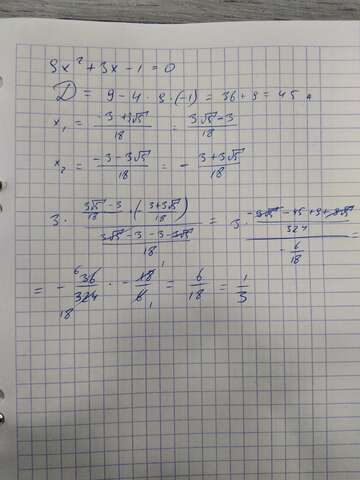 9x² + 3x - 1 = 0
D = 9 - 4 · 9 · (-1) = 36 + 9 = 45
x₁ = (-3 + 3√5)/18 = (3√5 - 3)/18
x₂ = (-3 - 3√5)/18 = - (3 + 3√5)/18
3 · ((3√5 - 3)/18 · (- (3 + 3√5)/18))/((3√5 - 3 - 3 - 3√5)/18) = 3 · ((-9√5 - 45 + 9 + 9√5)/324)/(- 6/18) =
= - 36/324 · - 18/6 = 6/18 = 1/3